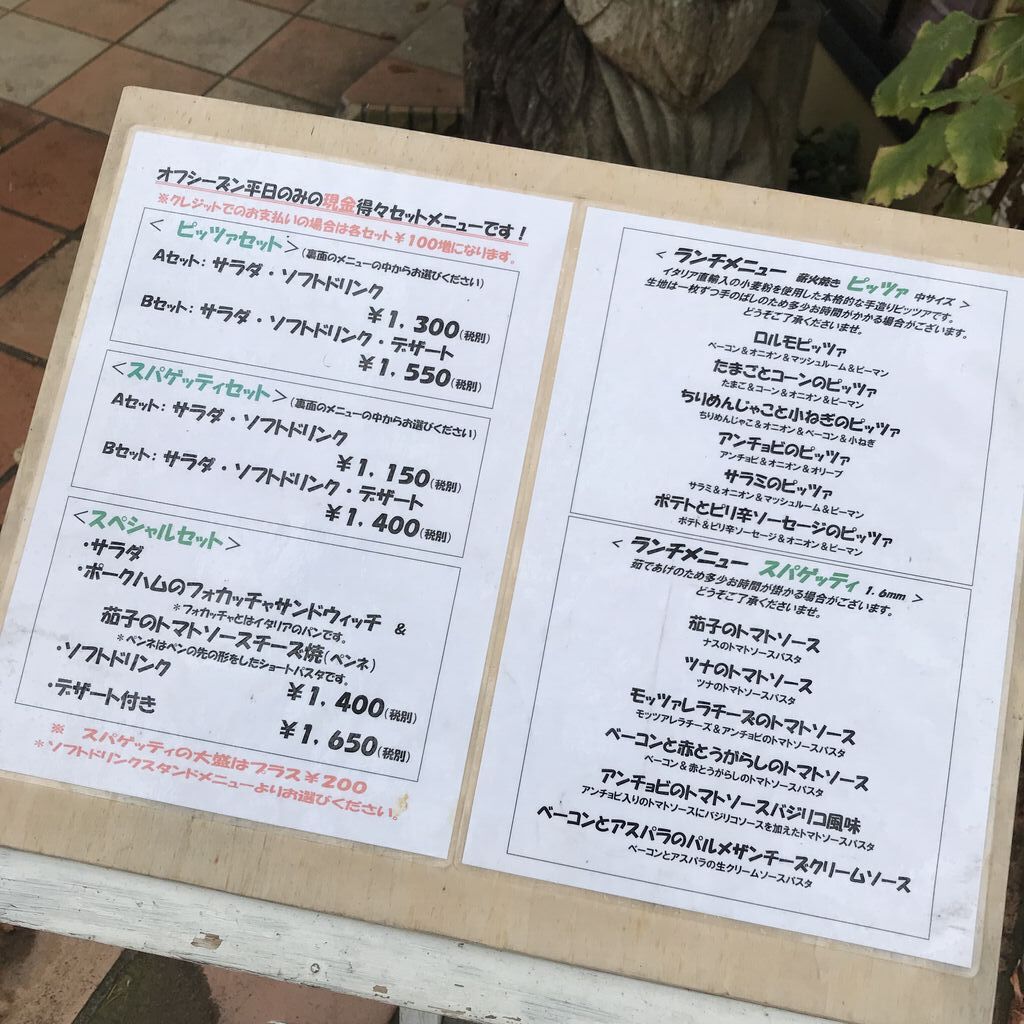 オフシーズン平日のみの現金得々セットメニューです！
※クレジットでのお支払いの場合は各セット￥100増になります。
＜ ピッツァセット ＞(裏面のメニューの中からお選びください)
Aセット：サラダ・ソフトドリンク
￥1．300(税別)
Bセット：サラダ・ソフトドリンク・デザート
￥1．550(税別)
＜スパゲッティセット＞(裏面のメニューの中からお選びください)
Aセット：サラダ・ソフトドリンク
￥1．150(税別)
Bセット：サラダ・ソフトドリンク・デザート
￥1．400(税別)
＜スペシャルセット＞
・サラダ
・ポークハムのフォカッチャサンドウィッチ ＆
＊フォカッチャとはイタリアのパンです。
茄子のトマトソースチーズ焼(ペンネ)
＊ペンネはペンの先の形をしたショートパスタです。
・ソフトドリンク
￥1．400(税別)
・デザート付き
￥1．650(税別)
※ スパゲッティの大盛はプラス￥200
＊ソフトドリンクスタンドメニューよりお選びください。
＜ ランチメニュー 薪火焼き ピッツァ 中サイズ ＞
イタリア直輸入の小麦粉を使用した本格的な手造りピッツァです。
生地は一枚ずつ手のばしのため多少お時間がかかる場合がございます。
どうぞご了承くださいませ。
ロルモピッツァ
ベーコン＆オニオン＆マッシュルーム＆ピーマン
たまごとコーンのピッツァ
たまご＆コーン＆オニオン＆ピーマン
ちりめんじゃこと小ねぎのピッツァ
ちりめんじゃこ＆オニオン＆ベーコン＆小ねぎ
アンチョビのピッツァ
アンチョビ＆オニオン＆オリーブ
サラミのピッツァ
サラミ＆オニオン＆マッシュルーム＆ピーマン
ポテトとピリ辛ソーセージのピッツァ
ポテト＆ピリ辛ソーセージ＆オニオン＆ピーマン
＜ ランチメニュー スパゲッティ 1.6mm ＞
茹であげのため多少お時間が掛かる場合がございます。
どうぞご了承くださいませ。
茄子のトマトソース
ナスのトマトソースパスタ
ツナのトマトソース
ツナのトマトソースパスタ
モッツァレラチーズのトマトソース
モッツアレラチーズ＆アンチョビのトマトソースパスタ
ベーコンと赤とうがらしのトマトソース
ベーコン＆赤とうがらしのトマトソースパスタ
アンチョビのトマトソースバジリコ風味
アンチョビ入りのトマトソースにバジリコソースを加えたトマトソースパスタ
ベーコンとアスパラのパルメザンチーズクリームソース
ベーコンとアスパラの生クリームソースパスタ